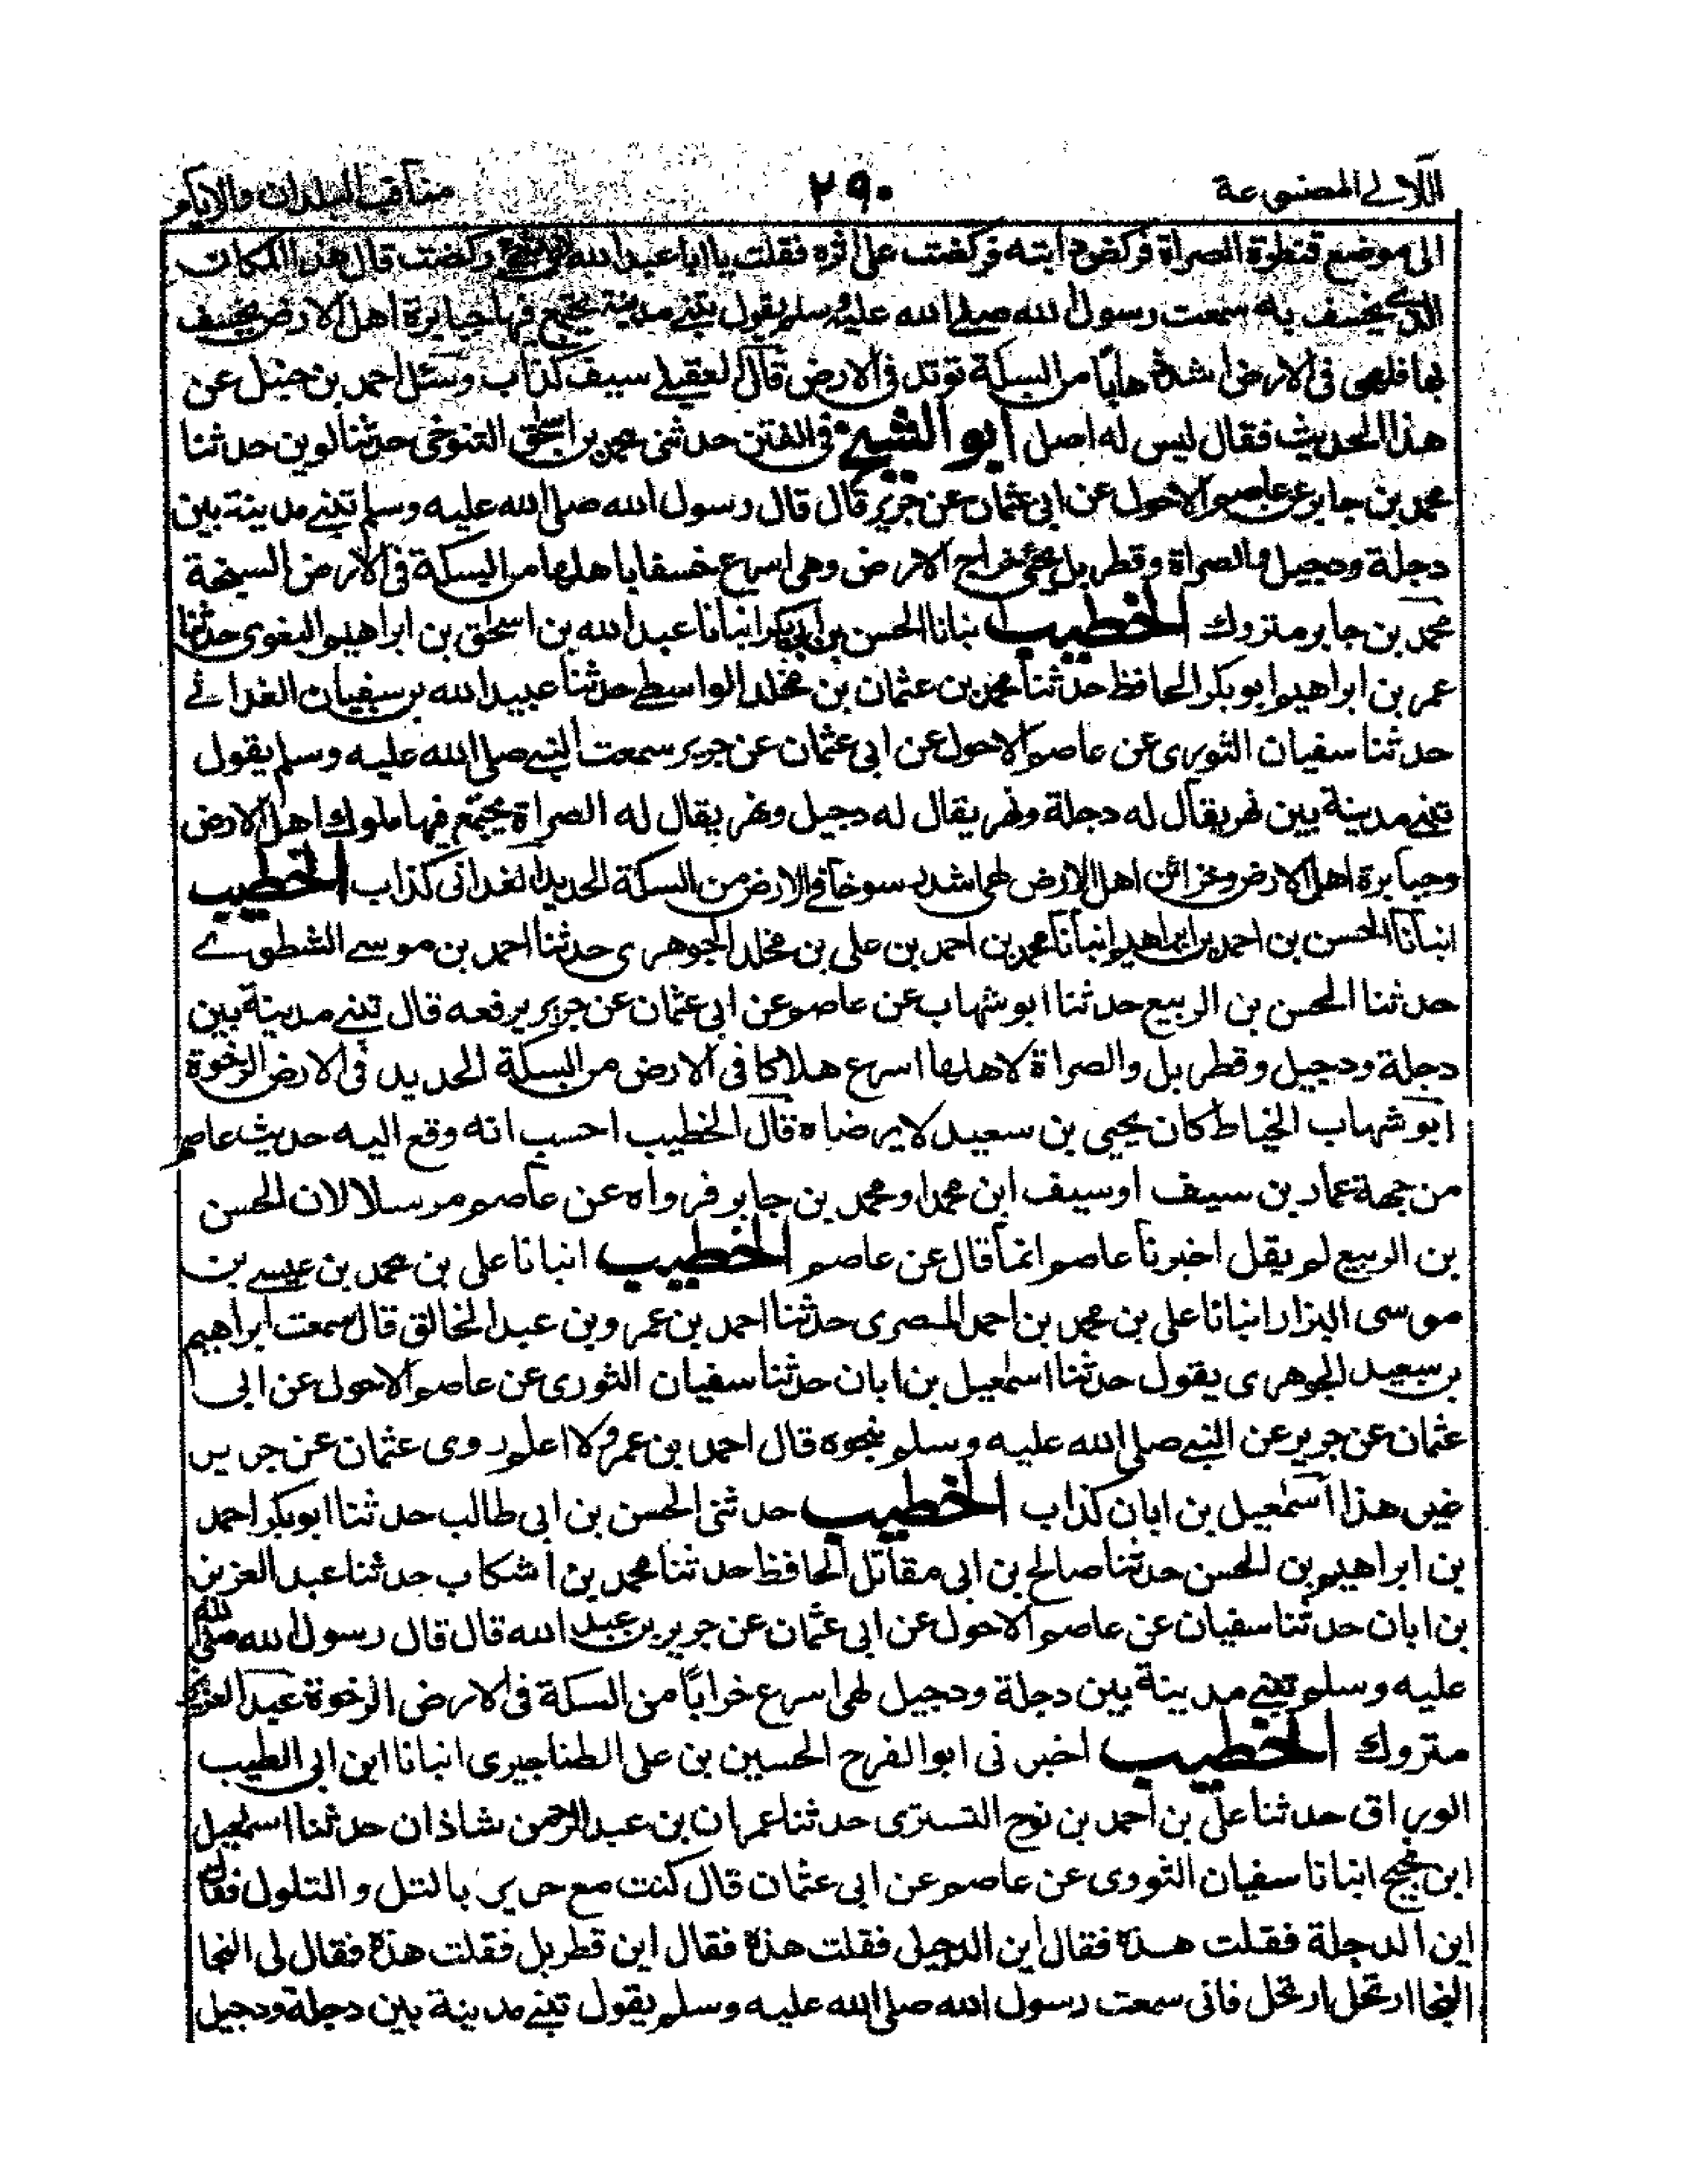 اللآلى المصنوعة ٢٩٠ مناقب البلدان والايام
الى موضع قنطرة الصراة فركض دابته فركضت على اثره فقلت يا ابا عبد الله ركضت قال هذا المكان
الذى يخسف به سمعت رسول الله صلى الله عليه وسلم يقول تبنى مدينة يجتمع فيها جبابرة اهل الارض يخسف
بها فلهى فى الارض اشد ذهابا من السكة توتد فى الارض قال العقيلى سيف كذاب وسئل احمد بن حنبل عن
هذا الحديث فقال ليس له اصل ابو الشيخ فى الفتن حدثنى عمر بن اسحق التنوخى حدثنا لوين حدثنا
محمد بن جابر عن عاصم الاحول عن ابى عثمان عن جرير قال قال رسول الله صلى الله عليه وسلم تبنى مدينة بين
دجلة ودجيل والصراة وقطربل يجئ خراج الارض وهى اسرع خسفا باهلها من السكة فى الارض السبخة
محمد بن جابر متروك الخطيب انبانا الحسن بن ابى بكر انبانا عبد الله بن اسحق بن ابراهيم البغوى حدثنا
عمر بن ابراهيم ابو بكر الحافظ حدثنا محمد بن عثمان بن مخلد الواسطى حدثنا عبيد الله بن سفيان الغدائى
حدثنا سفيان الثورى عن عاصم الاحول عن ابى عثمان عن جرير سمعت النبى صلى الله عليه وسلم يقول
تبنى مدينة بين نهر يقال له دجلة ونهر يقال له دجيل ونهر يقال له الصراة يجتمع فيها ملوك اهل الارض
وجبابرة اهل الارض وخزائن اهل الارض لهى اشد سوخا فى الارض من السكة الحديد الغدانى كذاب الخطيب
انبانا الحسن بن احمد بن ابراهيم انبانا محمد بن احمد بن على بن مخلد الجوهرى حدثنا احمد بن موسى الشطوى
حدثنا الحسن بن الربيع حدثنا ابو شهاب عن عاصم عن ابى عثمان عن جرير يرفعه قال تبنى مدينة بين
دجلة ودجيل وقطربل والصراة لاهلها اسرع هلاكا فى الارض من السكة الحديد فى الارض الرخوة
ابو شهاب الخياط كان يحيى بن سعيد لا يرضاه قال الخطيب احسب انه وقع اليه حديث عاصم
من جهة عمار بن سيف او سيف ابن محمد او محمد بن جابر فرواه عن عاصم مرسلا لان الحسن
بن الربيع لم يقل اخبرنا عاصم انما قال عن عاصم الخطيب انبانا على بن محمد بن عيسى بن
موسى البزار انبانا على بن محمد بن احمد المصرى حدثنا احمد بن عمرو بن عبد الخالق قال سمعت ابراهيم
بن سعيد الجوهرى يقول حدثنا اسمعيل بن ابان حدثنا سفيان الثورى عن عاصم الاحول عن ابى
عثمان عن جرير عن النبى صلى الله عليه وسلم بنحوه قال احمد بن عمرو لا اعلم روى عثمان عن جرير
غير هذا اسمعيل بن ابان كذاب الخطيب حدثنى الحسن بن ابى طالب حدثنا ابو بكر احمد
بن ابراهيم بن الحسن حدثنا صالح بن ابى مقاتل الحافظ حدثنا محمد بن اشكاب حدثنا عبد العزيز
بن ابان حدثنا سفيان عن عاصم الاحول عن ابى عثمان عن جرير بن عبد الله قال قال رسول الله صلى الله
عليه وسلم تبنى مدينة بين دجلة ودجيل لهى اسرع خرابًا من السكة فى الارض الرخوة عبد العزيز
متروك الخطيب اخبرنى ابو الفرح الحسين بن على الطناجيرى انبانا ابن ابى الطيب
الوراق حدثنا على بن احمد بن نوح التسترى حدثنا عمران بن عبد الرحمن شاذان حدثنا اسمعيل
ابن نجيح انبانا سفيان الثورى عن عاصم عن ابى عثمان قال كنت مع جرير بالتل والتلول فقال
اين الدجلة فقلت هذه فقال اين الدجيل فقلت هذه فقال اين قطربل فقلت هذه فقال لى النجا
النجا ارتحل ارتحل فانى سمعت رسول الله صلى الله عليه وسلم يقول تبنى مدينة بين دجلة ودجيل